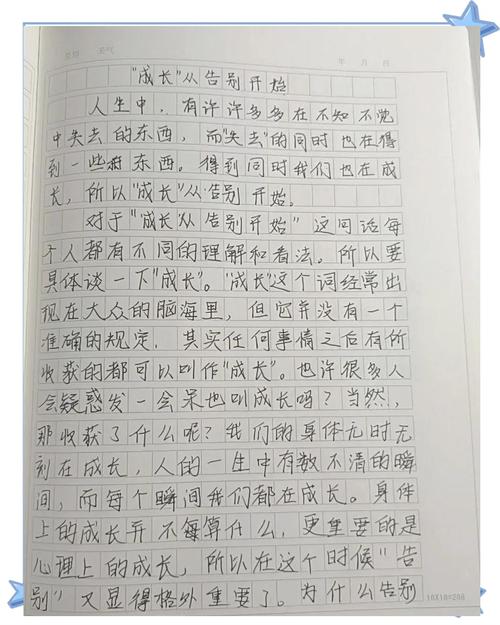 星期 天气 年 月 日
"成长"从告别开始
人生中，有许许多多在不知不觉
中失去的东西，而"失去"的同时也在得
到一些 东西。得到同时我们也在成
长，所以"成长"从告别开始。
对于"成长从告别开始"这问话每
个人都有不同的理解和看法。所以要
具体谈一下"成长"。"成长"这个词经常出
现在大众的脑海里，但它并没有一个
准确的规定，其实任何事情之后有所
收获的都可以叫作"成长"。也许很多人
会疑惑发一会呆也叫成长吗？当然，
那收获了什么呢？我们的身体无时无
刻在成长，人的一生中有数不清的瞬
间，而每个瞬间我们都在成长。身体
上的成长并不 算什么，更重要的是
心理上的成长，所以在这个时候"告
别"又显得格外重要了。为什么告别